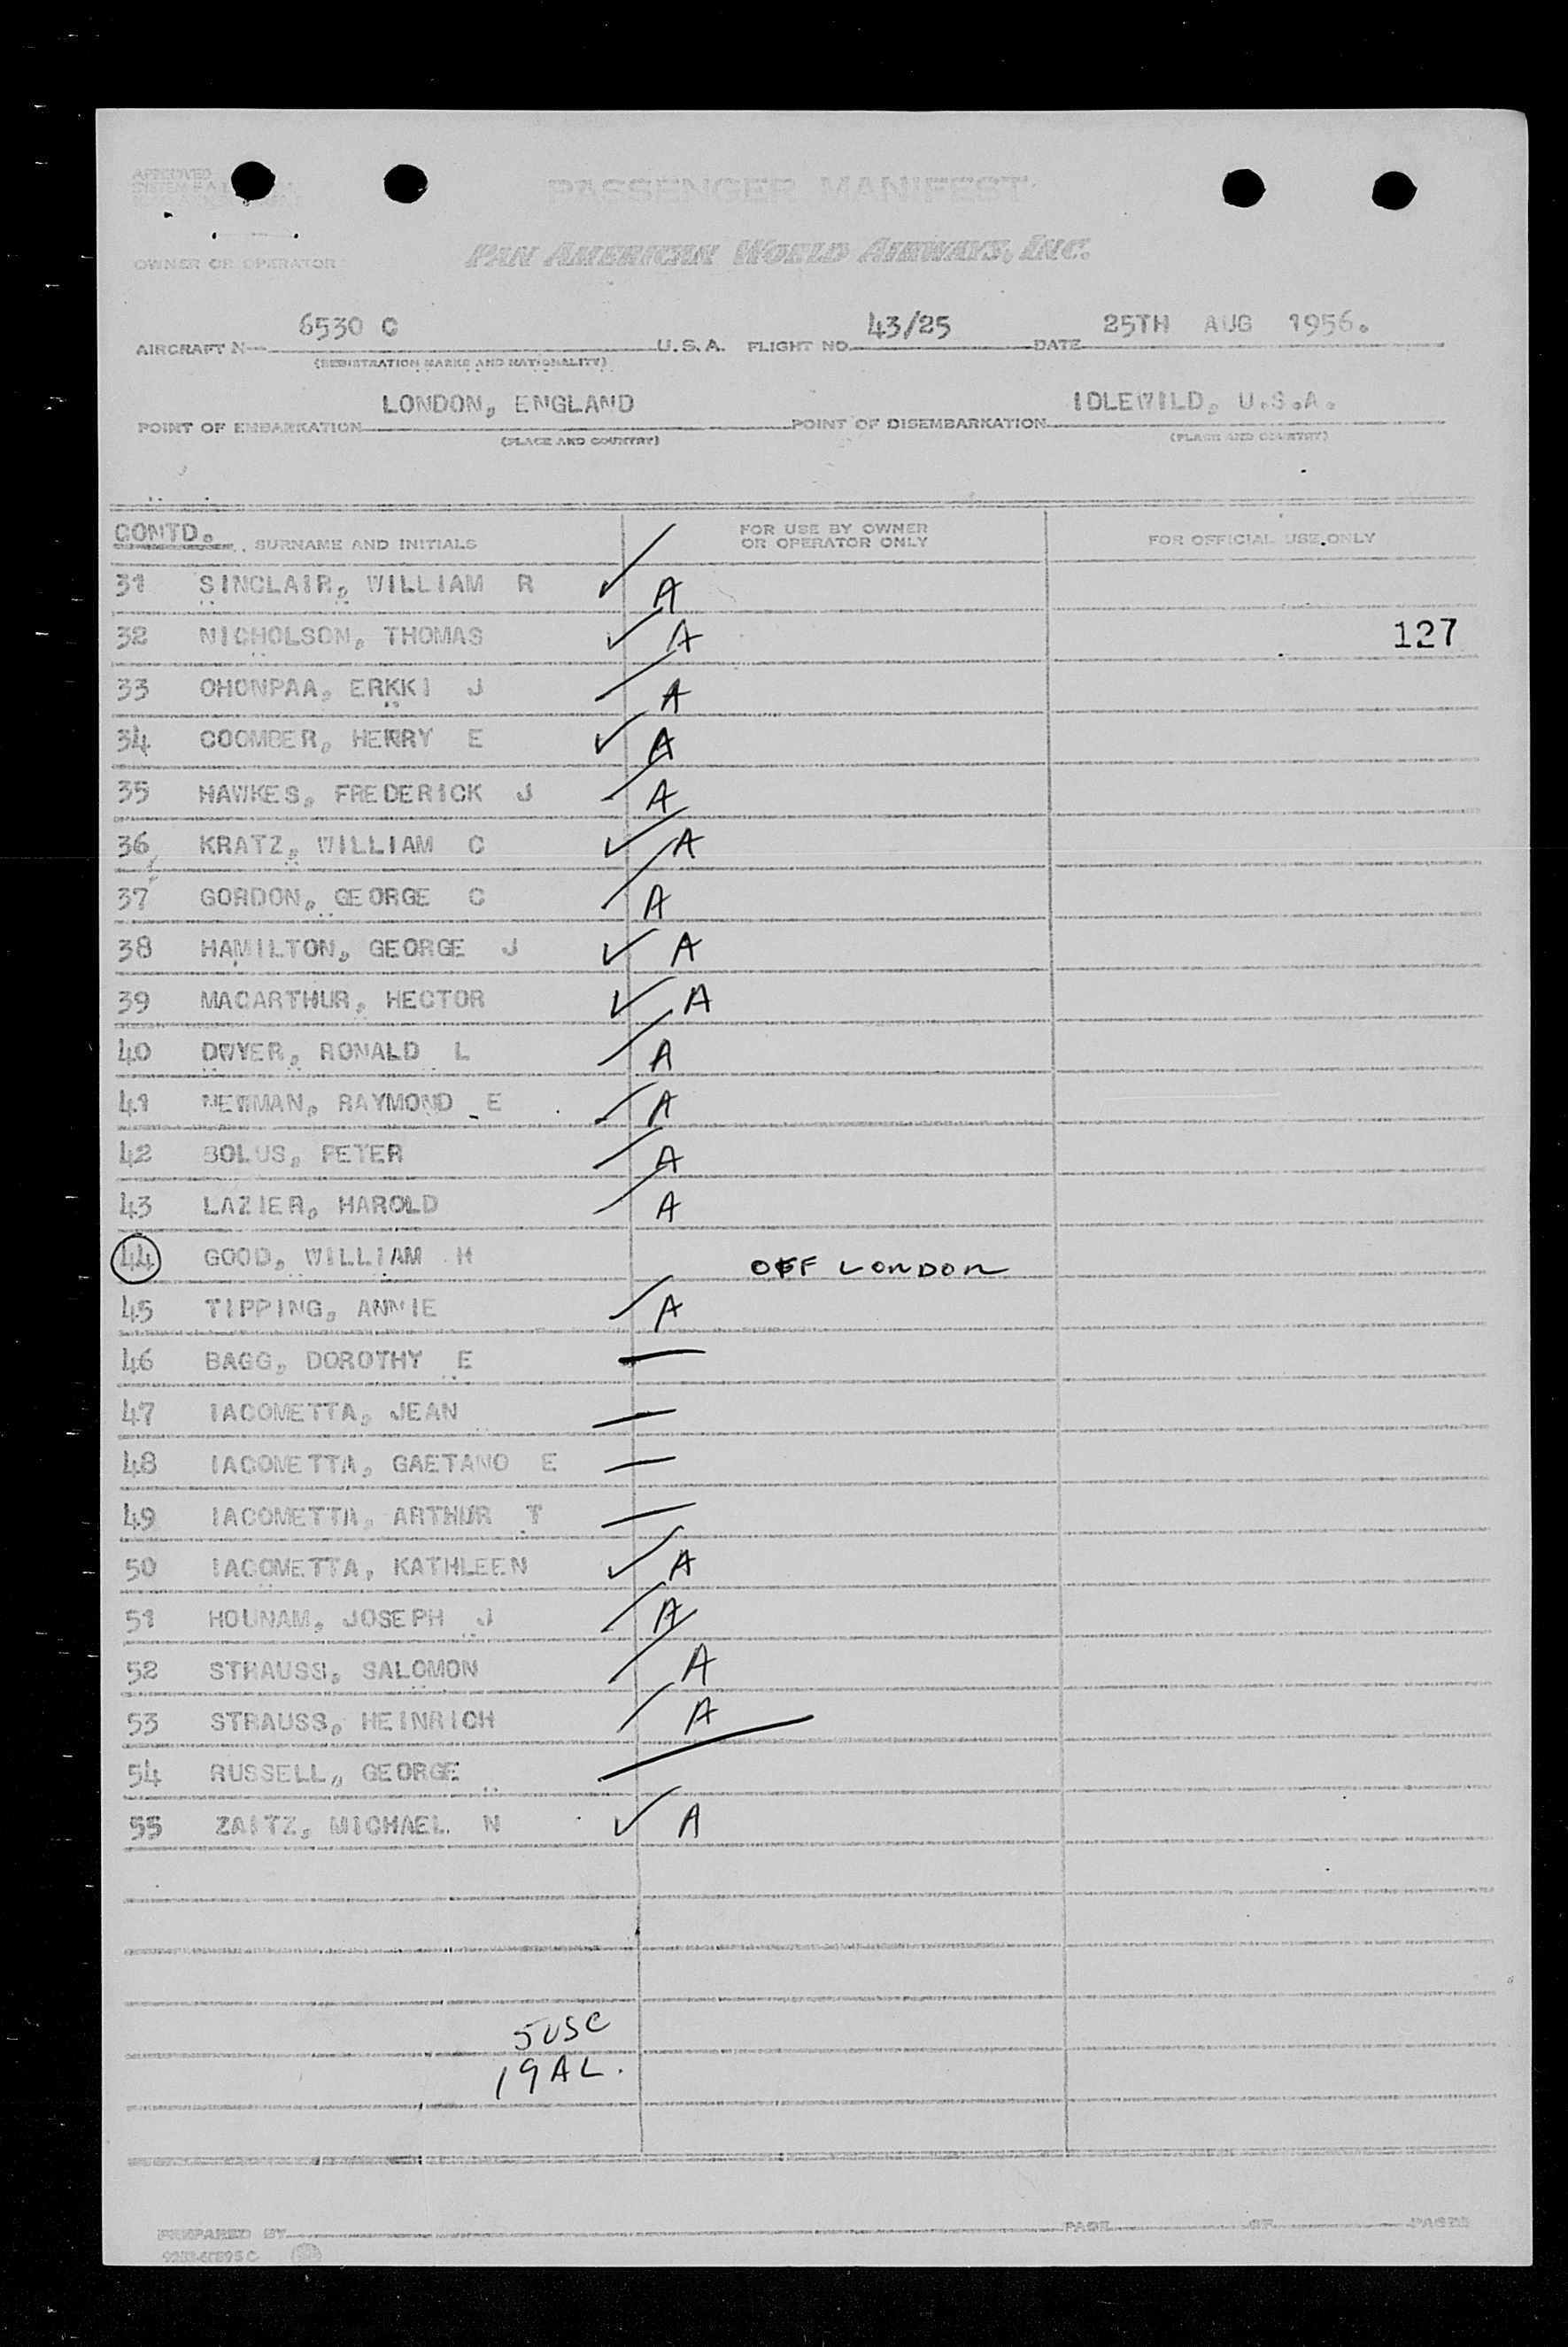 APPROVED
PASSENGER MANIFEST
OWNER OR OPERATOR PAN AMERICAN WORLD AIRWAYS, INC.
AIRCRAFT N 6530 C U.S.A. FLIGHT NO. 43/25 DATE 25TH AUG 1956.
(REGISTRATION MARKS AND NATIONALITY)
POINT OF EMBARKATION LONDON, ENGLAND POINT OF DISEMBARKATION IDLEWILD, U.S.A.
(PLACE AND COUNTRY) (PLACE AND COUNTRY)
CONTD. SURNAME AND INITIALS FOR USE BY OWNER OR OPERATOR ONLY FOR OFFICIAL USE ONLY
31 SINCLAIR, WILLIAM R ✓ A
32 NICHOLSON, THOMAS ✓ A 127
33 OHONPAA, ERKKI J A
34 COOMBER, HENRY E ✓ A
35 HAWKES, FREDERICK J A
36 KRATZ, WILLIAM C ✓ A
37 GORDON, GEORGE C A
38 HAMILTON, GEORGE J ✓ A
39 MACARTHUR, HECTOR ✓ A
40 DWYER, RONALD L A
41 NEWMAN, RAYMOND E A
42 BOLUS, PETER A
43 LAZIER, HAROLD A
44 GOOD, WILLIAM H OFF LONDON
45 TIPPING, ANNIE A
46 BAGG, DOROTHY E —
47 IACOMETTA, JEAN —
48 IACOMETTA, GAETANO E —
49 IACOMETTA, ARTHUR T —
50 IACOMETTA, KATHLEEN ✓ A
51 HOUNAM, JOSEPH J A
52 STRAUSS, SALOMON A
53 STRAUSS, HEINRICH A
54 RUSSELL, GEORGE —
55 ZAITZ, MICHAEL N ✓ A
5 USC
19 AL.
PREPARED BY PAGE OF PAGES